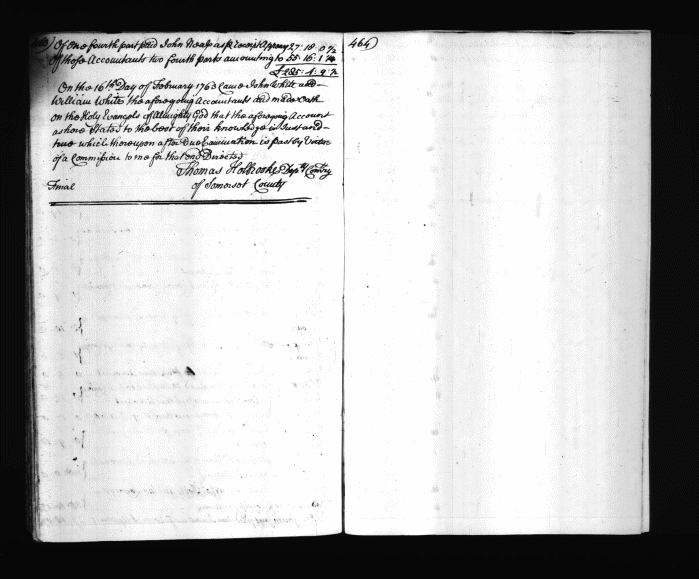 Of One fourth part paid John Neal as p Receipt Appears 27: 18: 0 ½
Of those Accountants two fourth parts amounting to 55: 16: 1
On the 16th Day of February 1763 Came John White and
William White the aforegoing Accountants and made Oath
on the Holy Evangels of Almighty God that the aforegoing Account
as here Stated to the best of their knowledge is Just and
true which thereupon after Due Examination is past by Virtue
of a Commission to me for that end Directed
Thomas Holbrooke Dep:ty Com:ry
Final of Somerset County
464)